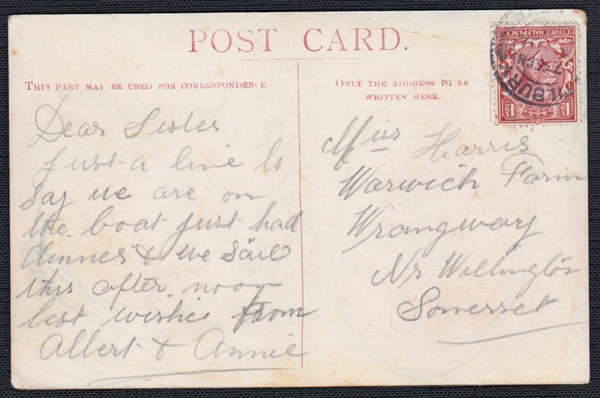 POST CARD.
THIS PART MAY BE USED FOR CORRESPONDENCE
ONLY THE ADDRESS TO BE
WRITTEN HERE.
Dear Sister
Just a line to
say we are on
the boat just had
dinner & we sail
this after noon
best wishes from
Albert & Annie
Miss Harris
Warwick Farm
Wrangway
Nr Wellington
Somerset
THREE HALFPENCE